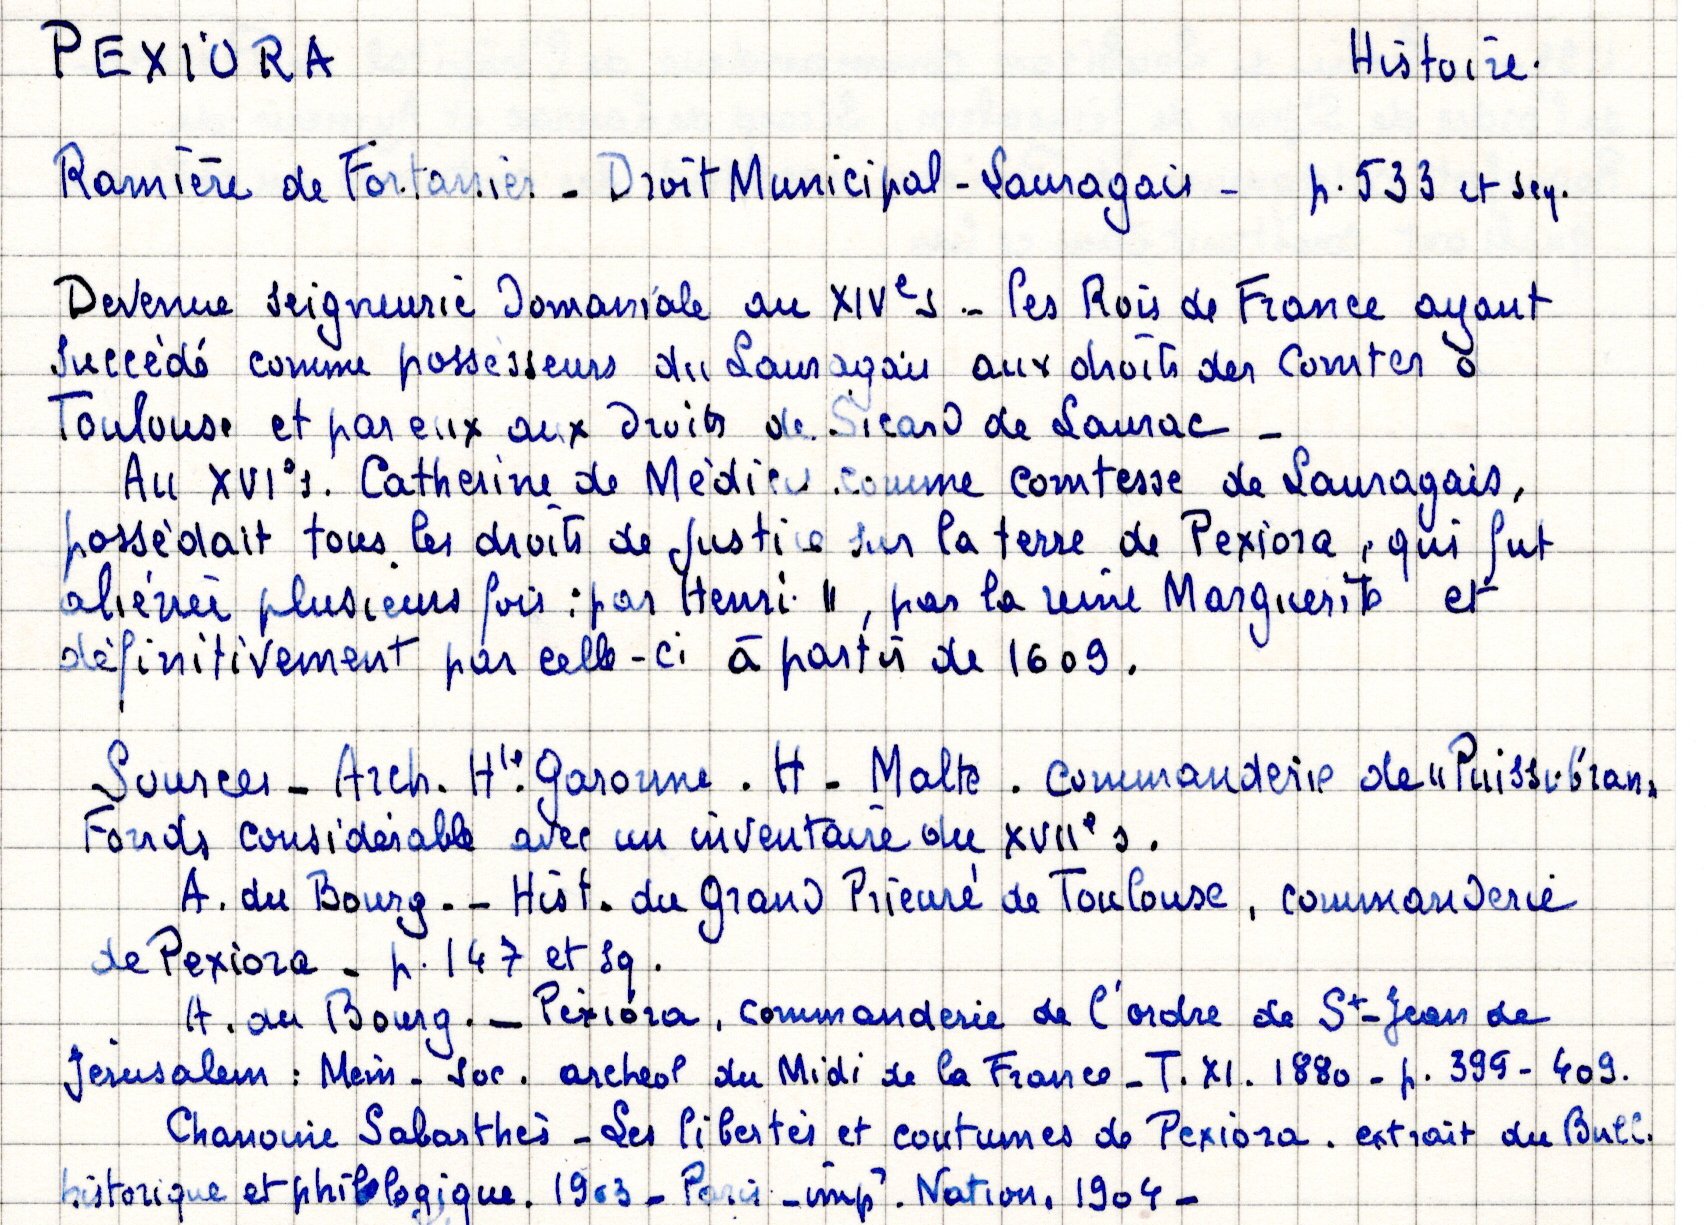 PEXIORA Histoire.
Ramière de Fortanier - Droit Municipal - Lauragais - p. 533 et seq.
Devenue seigneurie domaniale au XIVe s - les Rois de France ayant
succédé comme possesseurs du Lauragais aux droits des Comtes d
Toulouse et par eux aux droits de Sicard de Laurac -
Au XVIe s. Catherine de Médicis comme comtesse de Lauragais,
possédait tous les droits de justice sur la terre de Pexiora, qui fut
aliénée plusieurs fois : par Henri II, par la reine Marguerite et
définitivement par celle-ci à partir de 1609.
Sources - Arch. Hte Garonne. H - Malte. Commanderie de "Puissubran"
Fonds considérable avec un inventaire du XVIIe s.
A. du Bourg. - Hist. du Grand Prieuré de Toulouse, commanderie
de Pexiora - p. 147 et sq.
A. du Bourg. - Pexiora, commanderie de l'ordre de St-Jean de
Jérusalem : Mém - Soc. archéol du Midi de la France - T. XI. 1880 - p. 399 - 409.
Chanoine Sabarthès - Les libertés et coutumes de Pexiora. extrait du Bull.
historique et philologique. 1903 - Paris - imp. Nation. 1904 -